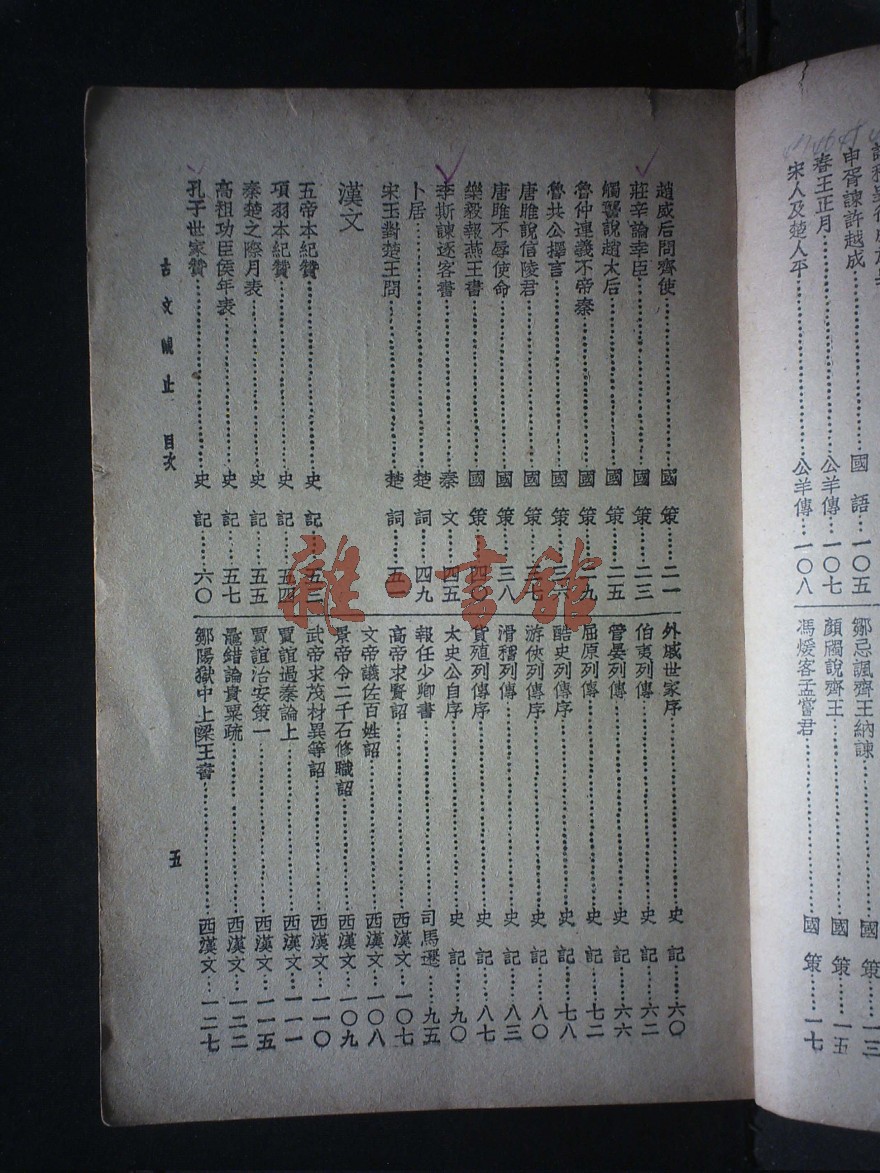 申胥諫許越成……國語……一〇五
春王正月……公羊傳……一〇七
宋人及楚人平……公羊傳……一〇八
鄒忌諷齊王納諫……國策……一三
顏斶說齊王……國策……一五
馮煖客孟嘗君……國策……一七
趙威后問齊使……國策……二一
莊辛論幸臣……國策……二三
觸讋說趙太后……國策……二五
魯仲連義不帝秦……國策……二九
魯共公擇言……國策……三六
唐雎說信陵君……國策……三七
唐雎不辱使命……國策……三八
樂毅報燕王書……國策……四〇
李斯諫逐客書……秦文……四五
卜居……楚詞……四九
宋玉對楚王問……楚詞……五一
漢文
五帝本紀贊……史記……五三
項羽本紀贊……史記……五四
秦楚之際月表……史記……五五
高祖功臣侯年表……史記……五七
孔子世家贊……史記……六〇
外戚世家序……史記……六〇
伯夷列傳……史記……六二
管晏列傳……史記……六六
屈原列傳……史記……七二
酷史列傳序……史記……七八
游俠列傳序……史記……八〇
滑稽列傳……史記……八三
貨殖列傳序……史記……八七
太史公自序……史記……九〇
報任少卿書……司馬遷……九五
高帝求賢詔……西漢文……一〇七
文帝議佐百姓詔……西漢文……一〇八
景帝令二千石修職詔……西漢文……一〇九
武帝求茂材異等詔……西漢文……一一〇
賈誼過秦論上……西漢文……一一一
賈誼治安策一……西漢文……一一五
鼂錯論貴粟疏……西漢文……一二二
鄒陽獄中上梁王書……西漢文……一二七
古文觀止 目次
五
雜·書館